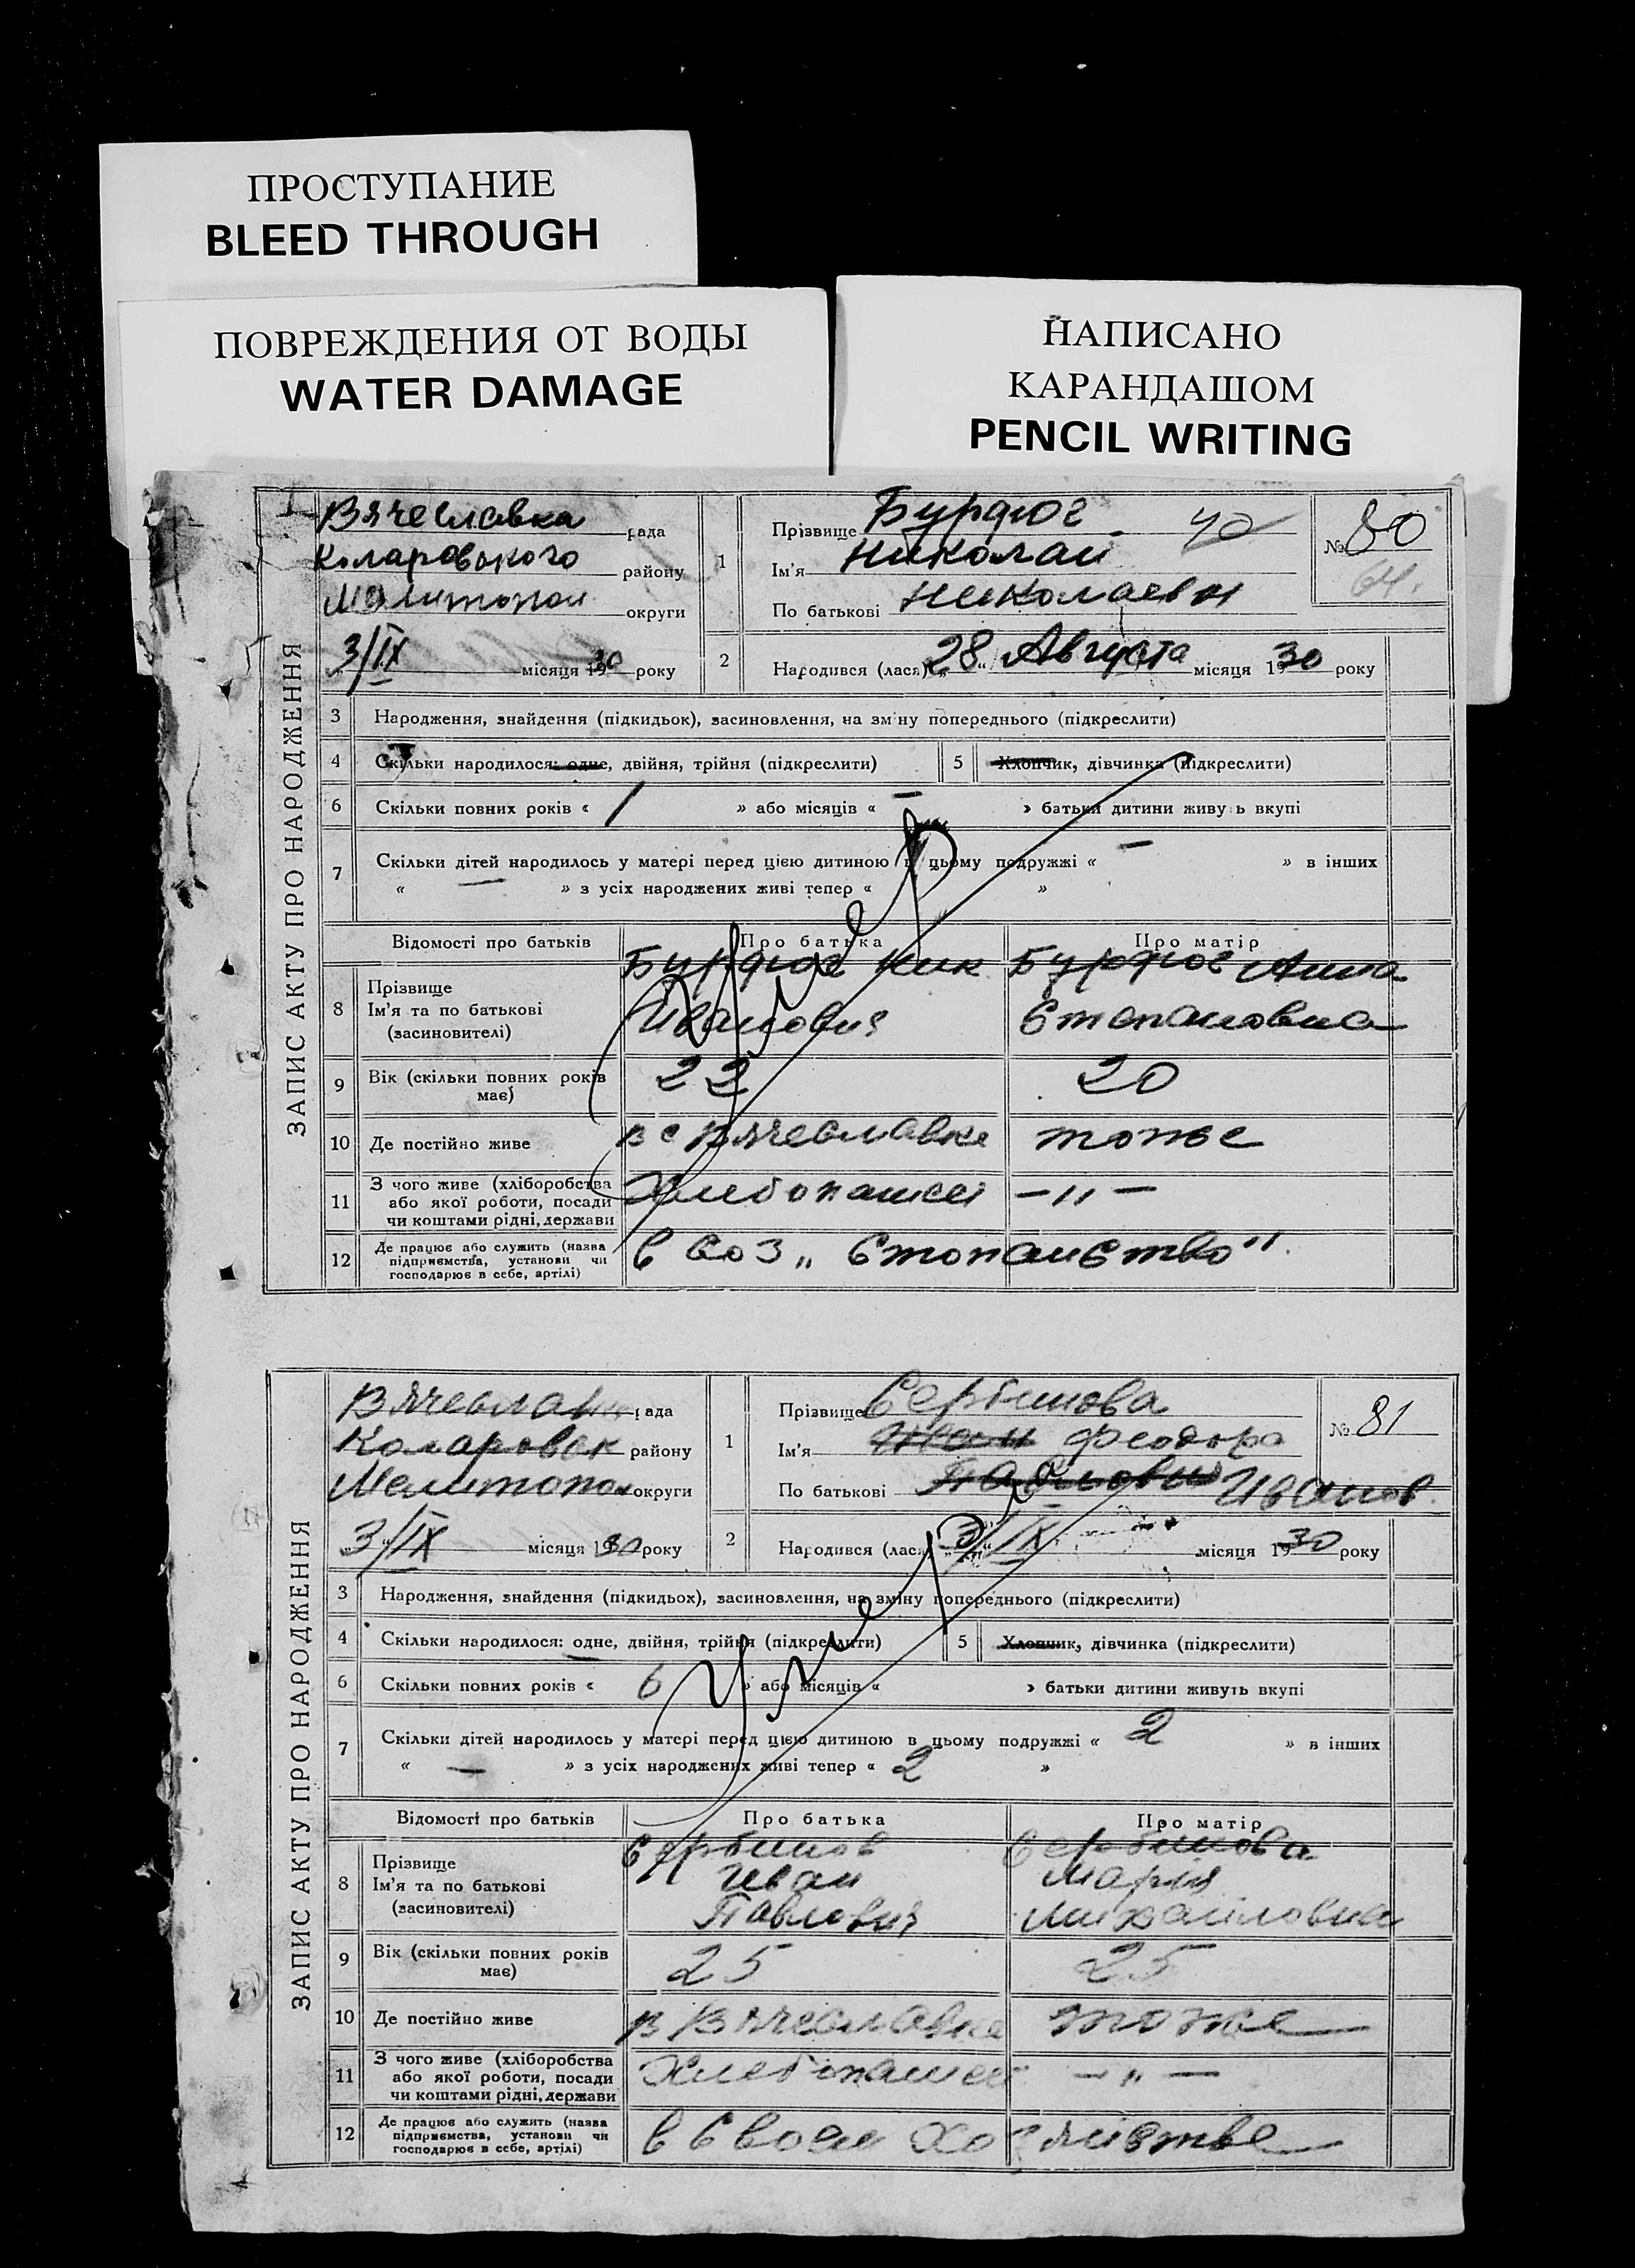 ПРОСТУПАНИЕ
BLEED THROUGH
ПОВРЕЖДЕНИЯ ОТ ВОДЫ
WATER DAMAGE
НАПИСАНО
КАРАНДАШОМ
PENCIL WRITING
ЗАПИС АКТУ ПРО НАРОДЖЕННЯ
Вячеславка рада
Коларовського району
Мелитопол округи
3/IX місяця 1930 року
1 Прізвище Бурдюг 40
Ім'я Николай
По батькові Николаевич
№ 80
64.
2 Народився (лася) „28“ Августа місяця 1930 року
3 Народження, знайдення (підкидьок), засиновлення, на зміну попереднього (підкреслити)
4 Скільки народилося: одне, двійня, трійня (підкреслити) 5 Хлопчик, дівчинка (підкреслити)
6 Скільки повних років « 1 » або місяців « — » батьки дитини живуть вкупі
7 Скільки дітей народилось у матері перед цією дитиною в цьому подружжі « — » в інших
« — » з усіх народжених живі тепер « »
Відомості про батьків Про батька Про матір
8 Прізвище Ім'я та по батькові (засновителі) Бурдюг Ник Иванович Бурдюг Анна Степановна
9 Вік (скільки повних років має) 22 20
10 Де постійно живе в с Вячеславке тоже
11 З чого живе (хліборобства або якої роботи, посади чи коштами рідні, держави Хлебопашест — „ —
12 Де працює або служить (назва підприємства, установи чи господарює в себе, артілі) в Соз „Стопанство"
ЗАПИС АКТУ ПРО НАРОДЖЕННЯ
Вячеслав рада
Коларовск району
Мелитопол округи
3/IX місяця 1930 року
1 Прізвище Сербинова
Ім'я Иван Феодора
По батькові Павлович Иванов.
№ 81
2 Народився (лася) 3/IX місяця 1930 року
3 Народження, знайдення (підкидьох), засиновлення, на зміну попереднього (підкреслити)
4 Скільки народилося: одне, двійня, трійня (підкреслити) 5 Хлопчик, дівчинка (підкреслити)
6 Скільки повних років « 6 » або місяців « » батьки дитини живуть вкупі
7 Скільки дітей народилось у матері перед цією дитиною в цьому подружжі « 2 » в інших
« — » з усіх народжених живі тепер « 2 »
Відомості про батьків Про батька Про матір
8 Прізвище Ім'я та по батькові (засиновителі) Сербинов Иван Павлович Сербинова Мария Михайловна
9 Вік (скільки повних років має) 25 25
10 Де постійно живе в Вячеславке тоже
11 З чого живе (хліборобства або якої роботи, посади чи коштами рідні, держави Хлебопашест — „ —
12 Де працює або служить (назва підприємства, установи чи господарює в себе, артілі) в Своем Хозяйстве